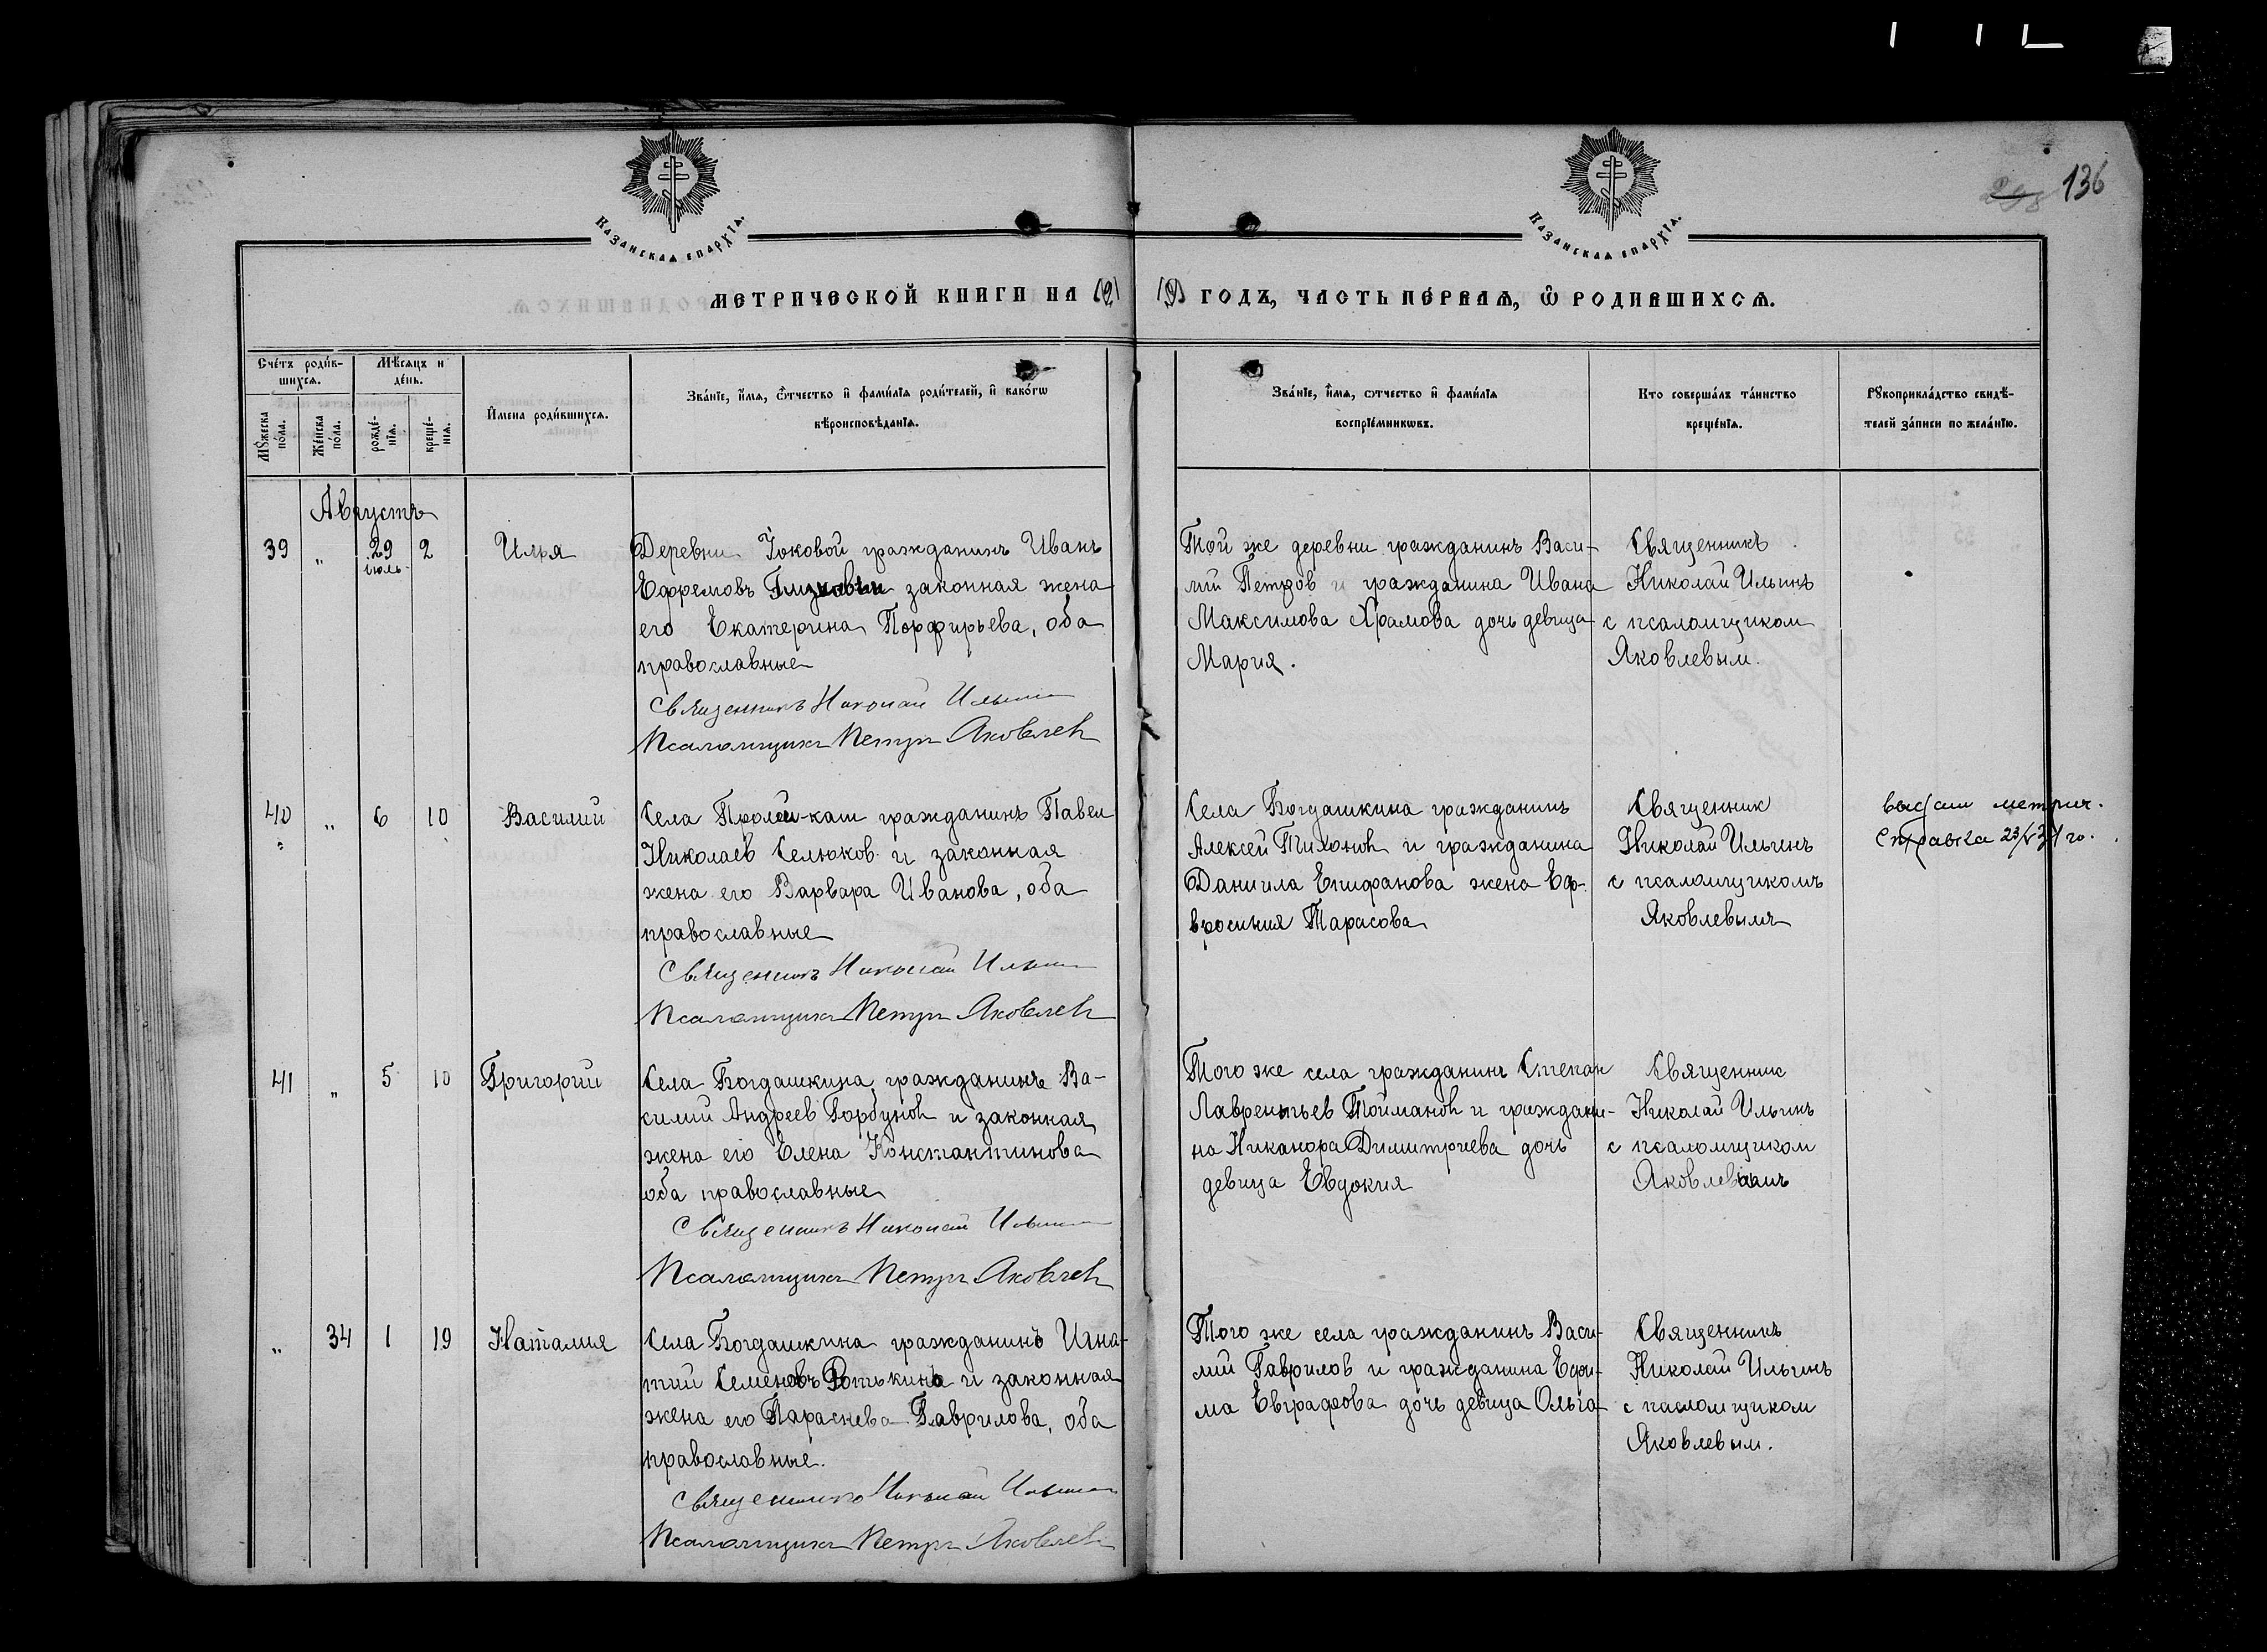 136
Казанская епархїѧ.
Казанская епархїѧ.
МЕТРИЧЕСКОЙ КНИГИ НА ГОДЪ, ЧАСТЬ ПЕ́РВАѦ, Ѽ РОДИВШИХСѦ.
Сче́тъ роди́в-
шихсѧ.
Мѣ́сѧцъ и
де́нь.
Мꙋ́жеска
по́ла.
Же́нска
по́ла.
рожде́-
нїѧ.
креще́-
нїѧ.
И҆мена роди́вшихсѧ.
Зва́нїе, и҆́мѧ, ѻ҆́тчество и҆ фами́лїѧ роди́телей, и҆ како́гѡ
вѣроисповѣ́данїѧ.
Зва́нїе, и҆́мѧ, ѻтчество и҆ фами́лїѧ
воспрїе́мникѡвъ.
Кто соверша́лъ та́инство
креще́нїѧ.
Рꙋкоприкла́дство свидѣ́-
телей за́писи по жела́нїю.
Августъ
39 " 29 2 Илья
июль
Деревни Токовой гражданинъ Иванъ
Ефремовъ законная жена
его Екатерина Порфирьева, оба
православные
Священникъ Николай Ильин
Псаломщикъ Петръ Яковлев
Той же деревни гражданинъ Васи-
лий Петров и гражданина Ивана
Максимова Храмова дочь девица
Мария.
Священникъ
Николай Ильинъ
с псаломщиком
Яковлевым.
40 " 6 10 Василий
Села гражданинъ Павел
Николаев Селюков и законная
жена его Варвара Иванова, оба
православные
Священникъ Николай Ильин
Псаломщикъ Петръ Яковлев
Села Богдашкина гражданинъ
Алексей Тихонов и гражданина
Даниила Епифанова жена Еф-
вросиния Тарасова
Священник
Николай Ильинъ
с псаломщикомъ
Яковлевымъ
выдан метрич.
Справка
41 " 5 10 Григорий
Села Богдашкина гражданинъ Ва-
силий Андреев Горбунов и законная
жена его Елена Константинова
оба православные
Священникъ Николай Ильин
Псаломщикъ Петръ Яковлев
Того же села гражданинъ Степан
Лаврентьев Тойманов и граждани-
на Никанора Димитриева дочь
девица Евдокия
Священник
Николай Ильинъ
с псаломщиком
" 34 1 19 Наталия
Села Богдашкина гражданинъ Игна-
тий Семеновъ и законная
жена его Параскева Гаврилова, оба
православные.
Священникъ Николай Ильин
Псаломщикъ Петръ Яковлев
Того же села гражданинъ Васи-
лий Гаврилов и гражданина Ефи-
ма Евграфова дочь девица Ольга
Священникъ
Николай Ильинъ
с пасломщиком
Яковлевым.